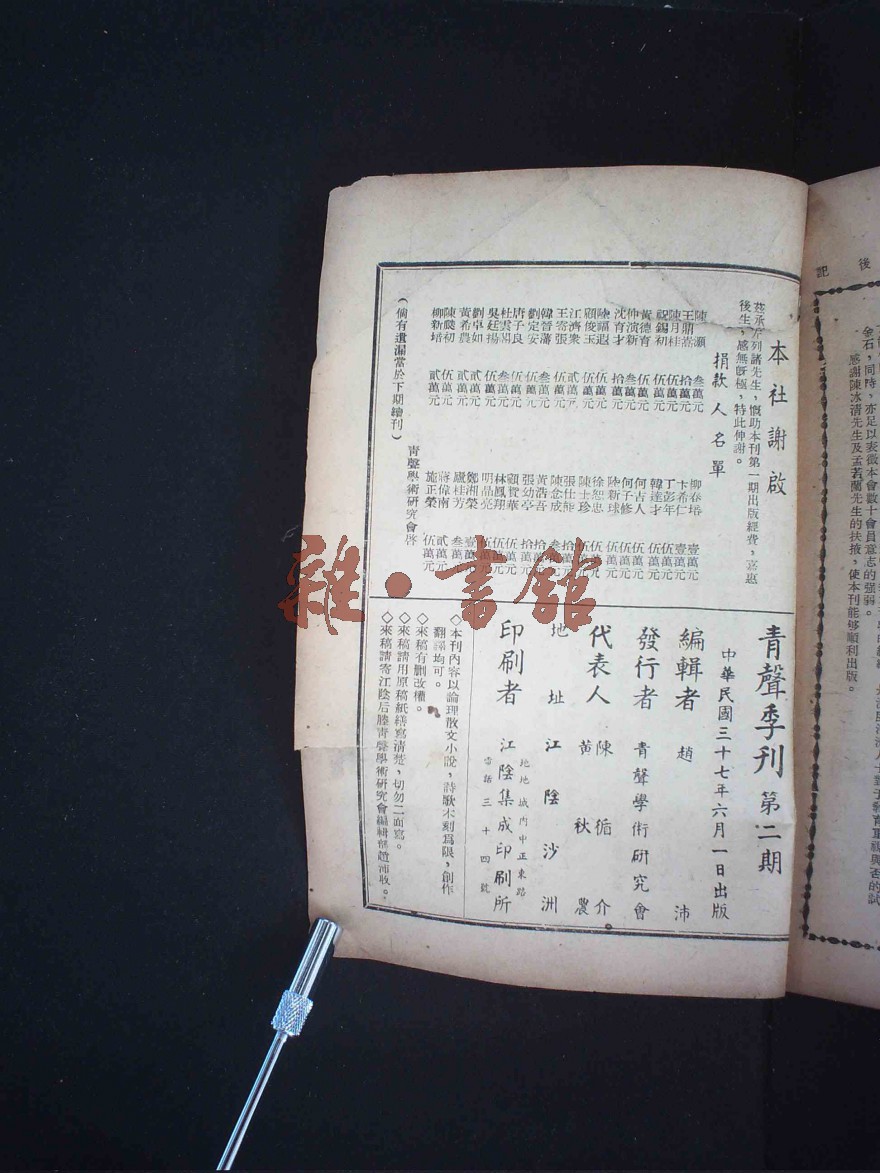 後記
金石，同時，亦足以表徵本會數十會員意志的强弱。
感謝陳冰清先生及孟若蘭先生的扶掖，使本刊能够順利出版。
本社謝啟
茲承下列諸先生，慨助本刊第一期出版經費，嘉惠
後生，感無旣極，特此伸謝。
捐款人名單
陳灝 叁萬元
王鼎嵩 拾萬元
陳月桂 伍萬元
祝錫初 伍萬元
黃德育 伍萬元
仲演新 叁萬元
沈育才 拾萬元
陸福遐 伍萬元
顧俊玉 伍萬元
江濟衆 貳萬元
王寄張 伍萬元
韓晉藩 叁萬元
劉定安 伍萬元
唐子良 伍萬元
杜雲閣 叁萬元
吳廷揚 伍萬元
劉卓如 貳萬元
黃希農 貳萬元
陳陵初 伍萬元
柳新培 貳萬元
柳春培 壹萬元
卞希仁 壹萬元
丁彭年 伍萬元
韓達才 伍萬元
何吉人 伍萬元
何子修 伍萬元
陸新球 伍萬元
徐恕忠 伍萬元
陳士珍 伍萬元
張仕能 拾萬元
陳念成 叁萬元
黃浩吾 拾萬元
張幼亭
顧賢華
林鳳翔
明晶亮
鄭湘榮
盧桂芳 叁萬元
蔣偉南 貳萬元
施正榮 伍萬元
（倘有遺漏當於下期續刊） 青聲學術研究會啓
青聲季刊 第二期
中華民國三十七年六月一日出版
編輯者 趙沛
發行者 青聲學術研究會
代表人 陳循介
黃秋農
地址 江陰沙洲
印刷者 江陰集成印刷所
地址 城內中正東路
電話 三十四號
◇本刊內容以論理散文小說，詩歌木刻爲限，創作
翻譯均可。
◇來稿有删改權。
◇來稿請用原稿紙繕寫清楚，切勿二面寫。
◇來稿請寄江陰后塍青聲學術研究會編輯部趙沛收。
雜·書館